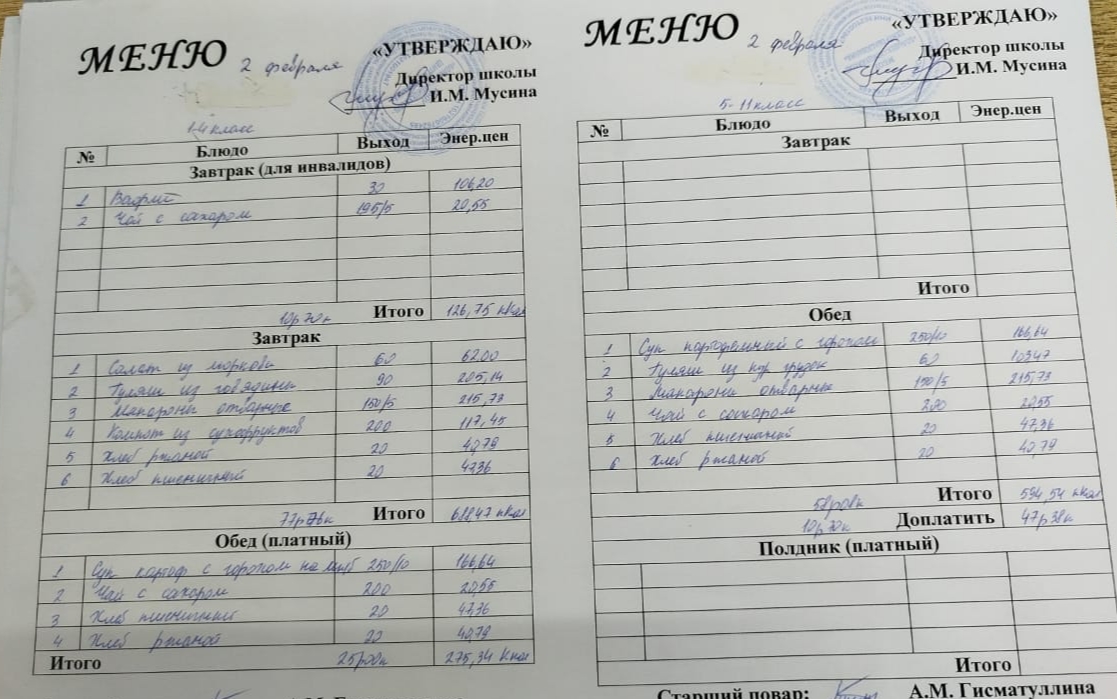 МЕНЮ 2 февраля
«УТВЕРЖДАЮ»
Директор школы
И.М. Мусина
1-4 класс
№ Блюдо Выход Энер.цен
Завтрак (для инвалидов)
1 Вафли 30 106,20
2 Чай с сахаром 195/5 20,55
10р 70к Итого 126,75 кКал
Завтрак
1 Салат из моркови 60 62.00
2 Гуляш из говядины 90 205,14
3 Макароны отварные 150/5 215,73
4 Компот из сухофруктов 200 117,45
5 Хлеб ржаной 20 40,79
6 Хлеб пшеничный 20 47,36
77р 78к Итого 688,47 кКал
Обед (платный)
1 Суп картоф с горохом на м/б 250/10 166,64
2 Чай с сахаром 200 20,55
3 Хлеб пшеничный 20 47,36
4 Хлеб ржаной 20 40,79
Итого 25р00к 275,34 Ккал
МЕНЮ 2 февраля
«УТВЕРЖДАЮ»
Директор школы
И.М. Мусина
5-11 класс
№ Блюдо Выход Энер.цен
Завтрак
Итого
Обед
1 Суп картофельный с горохом 250/10 166,64
2 Гуляш из кур грудок 60 103,47
3 Макароны отварные 150/5 215,73
4 Чай с сахаром 200 20,55
5 Хлеб пшеничный 20 47,36
6 Хлеб ржаной 20 40,79
58р08к Итого 594,54 кКал
10р 70к Доплатить 47р 38к
Полдник (платный)
Итого
Старший повар: А.М. Гисматуллина